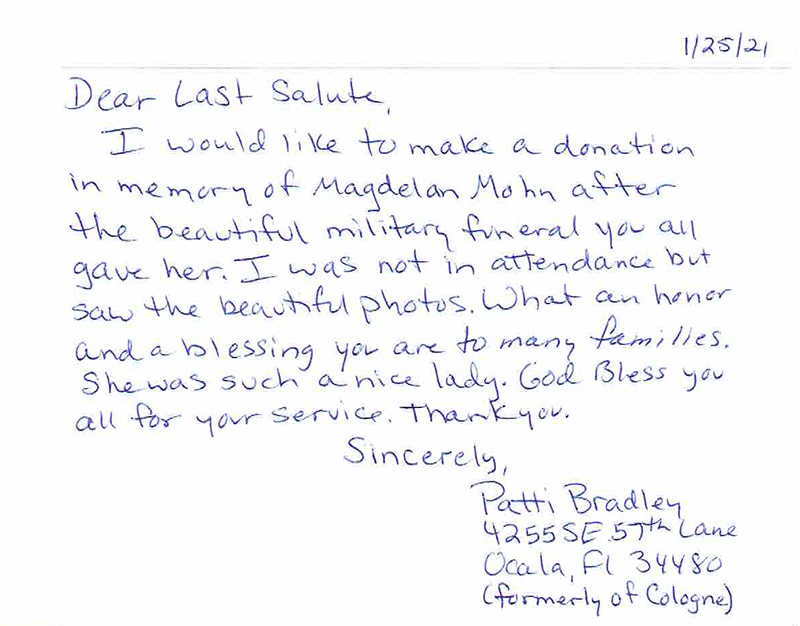 1/25/21
Dear Last Salute,
I would like to make a donation
in memory of Magdelan Mohn after
the beautiful military funeral you all
gave her. I was not in attendance but
saw the beautiful photos. What an honor
and a blessing you are to many families.
She was such a nice lady. God Bless you
all for your service. Thank you.
Sincerely,
Patti Bradley
4255 SE 57th Lane
Ocala, Fl 34480
(formerly of Cologne)